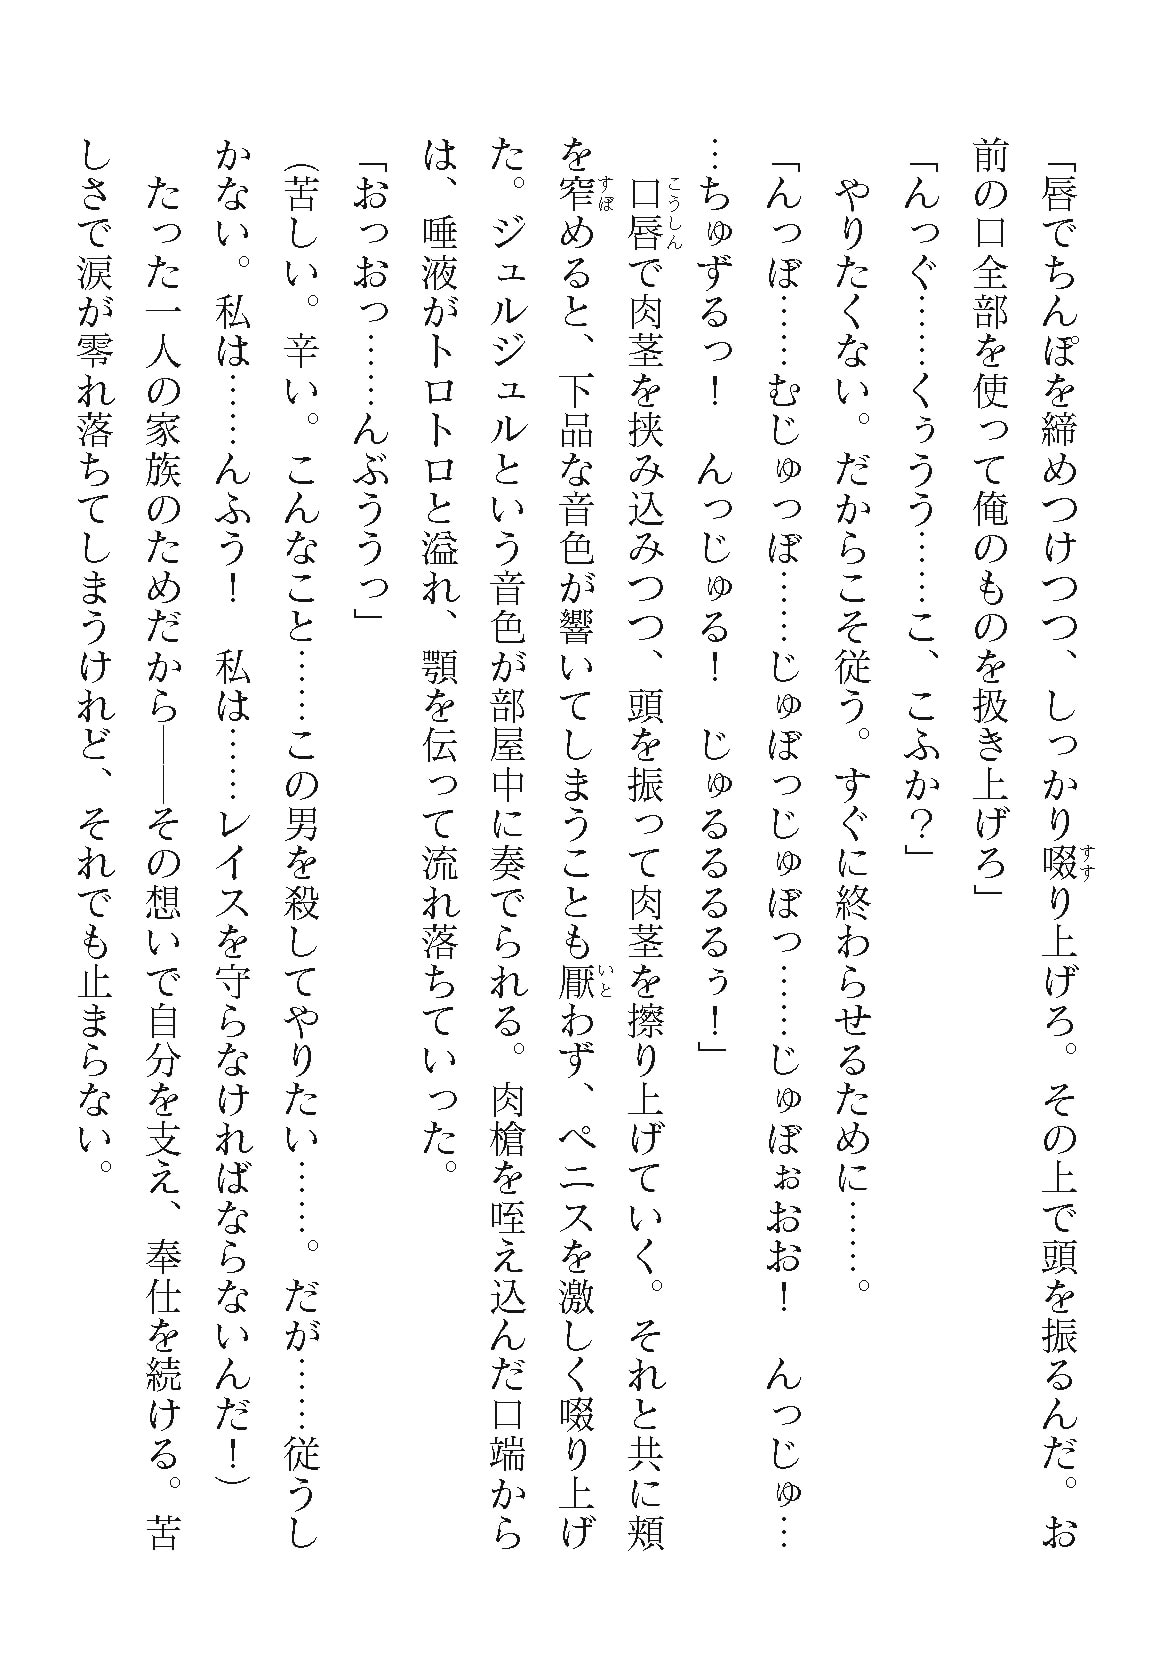 「唇でちんぽを締めつけつつ、しっかり啜り上げろ。その上で頭を振るんだ。お
すす
前の口全部を使って俺のものを扱き上げろ」
「んっぐ……くぅうう……こ、こふか？」
　やりたくない。だからこそ従う。すぐに終わらせるために……。
「んっぽ……むじゅっぽ……じゅぽっじゅぽっ……じゅぽぉおお！　んっじゅ…
…ちゅずるっ！　んっじゅる！　じゅるるるるぅ！」
　口唇で肉茎を挟み込みつつ、頭を振って肉茎を擦り上げていく。それと共に頬
こうしん
を窄めると、下品な音色が響いてしまうことも厭わず、ペニスを激しく啜り上げ
すぼ
いと
た。ジュルジュルという音色が部屋中に奏でられる。肉槍を咥え込んだ口端から
は、唾液がトロトロと溢れ、顎を伝って流れ落ちていった。
「おっおっ……んぶううっ」
（苦しい。辛い。こんなこと……この男を殺してやりたい……。だが……従うし
かない。私は……んふう！　私は……レイスを守らなければならないんだ！）
　たった一人の家族のためだから――その想いで自分を支え、奉仕を続ける。苦
しさで涙が零れ落ちてしまうけれど、それでも止まらない。